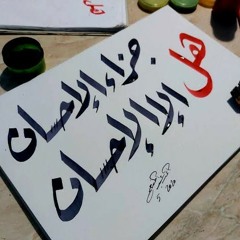 هل جزاء الإحسان
إلا الإحسان